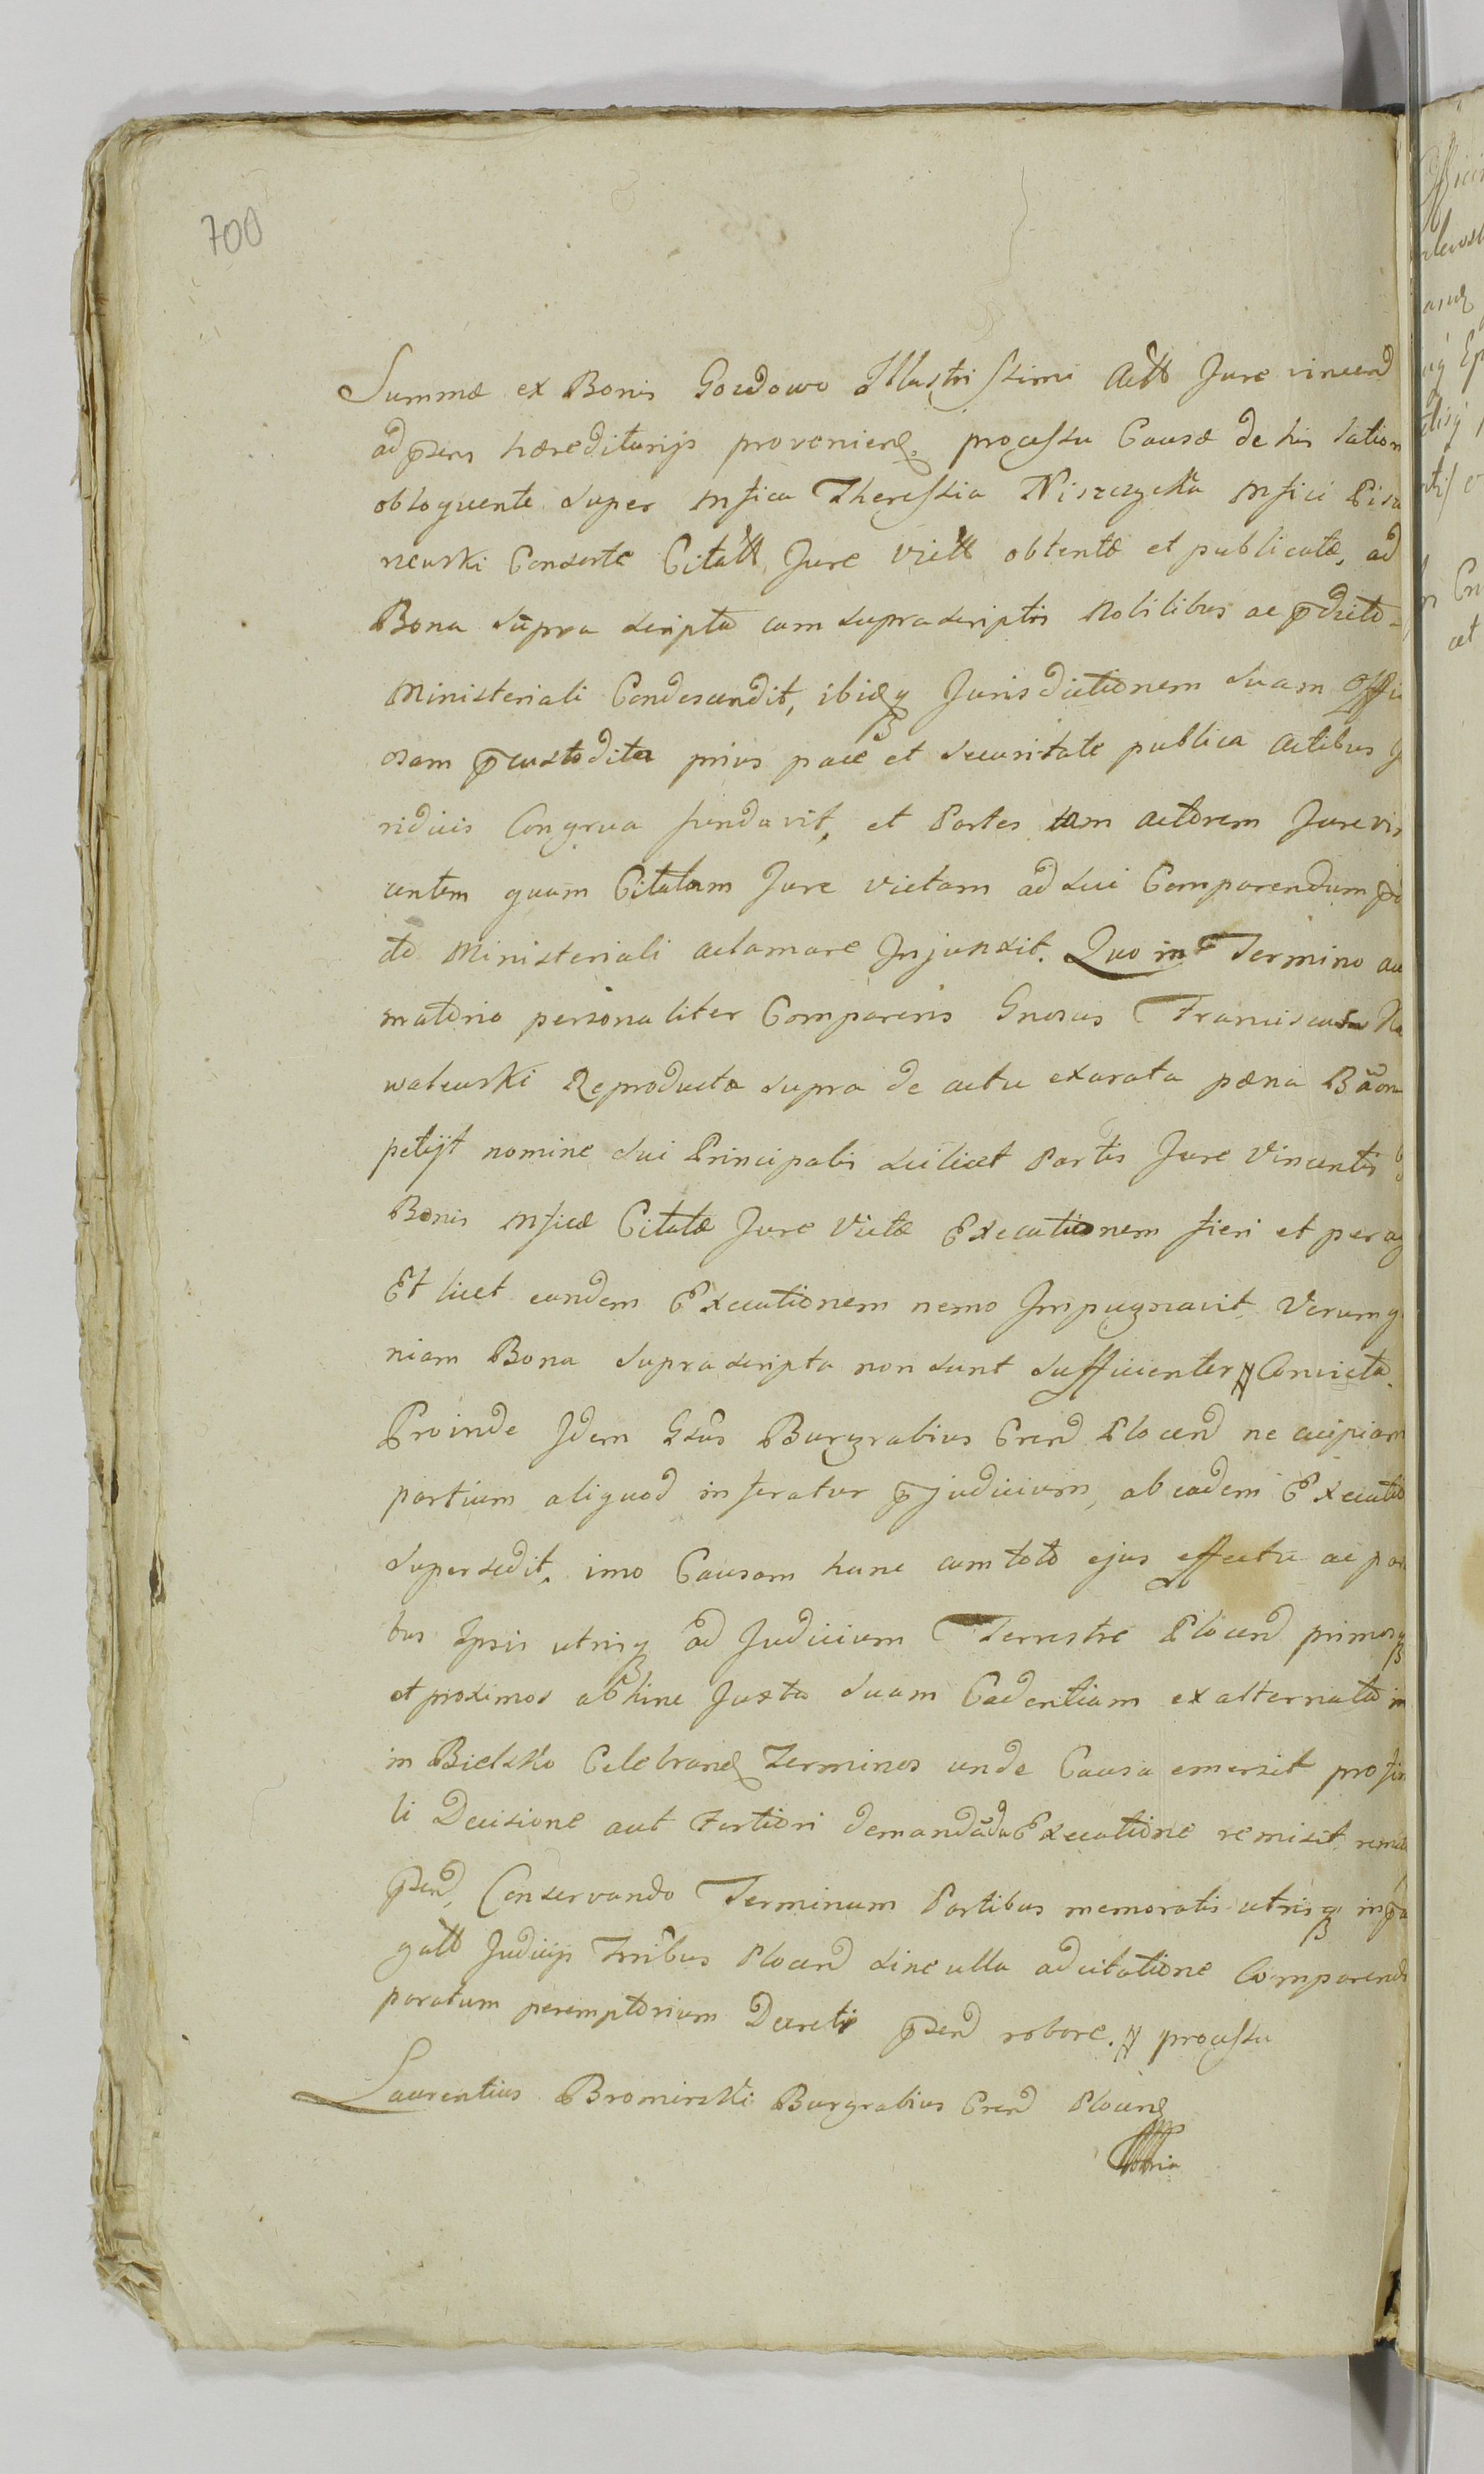 700
Summæ ex Bonis Gozdowo Illustrissimi Actt Jure vincend
ad præsens hæreditarijs provenien. processu Causæ de his lation
obloquente super Mfica Theressia Niszczycka Mfici Pisa
rzewski Consorte Citatt Jure Victt obtentæ et publicatæ, ad
Bona supra scripta cum suprascriptis Nobilibus ac pdicto
Ministeriali Condescendit, ibiq Jurisdictionem suam Offici
osam pcustodita prius pace et securitate publica actibus Ju
ridicis Congrua fundavit, et Partes tam actorem Jure vin
centem quam Citatam Jure victam ad sui Comparendum pd
cto Ministeriali aclamare Injunxit. Quo in Termino acla
matorio personaliter Comparens Gnosus Franciscus Na
walewski Reproducta supra de actu exarata pæna Bãon
petijt nomine sui Principalis scilicet Partis Jure Vincentis
Bonis Mficæ Citatæ Jure Victæ Executionem fieri et perag
Et licet eandem Executionem nemo Impugnavit Verum q
niam Bona suprascripta non sunt sufficienter Convicta.
Proinde Idem Gsus Burgrabius Cren Plocen ne cuipiam
partium aliquod inferatur pjudicium, ab eadem Executio
supersedit, imo Causam hanc cum toto ejus effectu ac par
bus Ipsis utrisq ad Judicium Terrestre Plocen primos
et proximos ab hinc Juxta suam Cadentiam ex alternata
in Bielsko Celebrand Terminos unde Causa emersit pro fin
li Decisione aut Fortiori demandada Executione remisit remit
psen, Conservando Terminum Partibus memoratis utrisq in
gatt Judicijs Trribus Plocen sine ulla adcitatione Comparendi
paratum peremptorium Decreti psen robore. processu
Laurentius Bromirski Burgrabius Cren Plocen